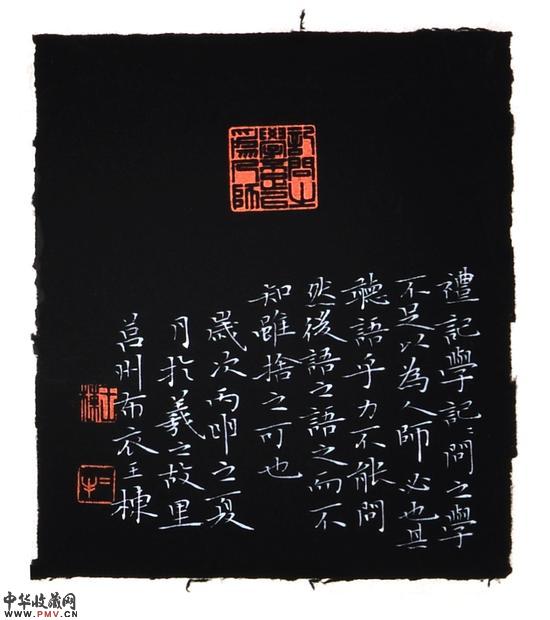 記問之
學不足以
為人師
禮記學記〻問之學
不足以為人師必也其
聽語乎力不能問
然後語之語之而不
知雖捨之可也
歲次丙申之夏
月於羲之故里
莒州布衣王棟
中华收藏网
WWW.PMV.CN